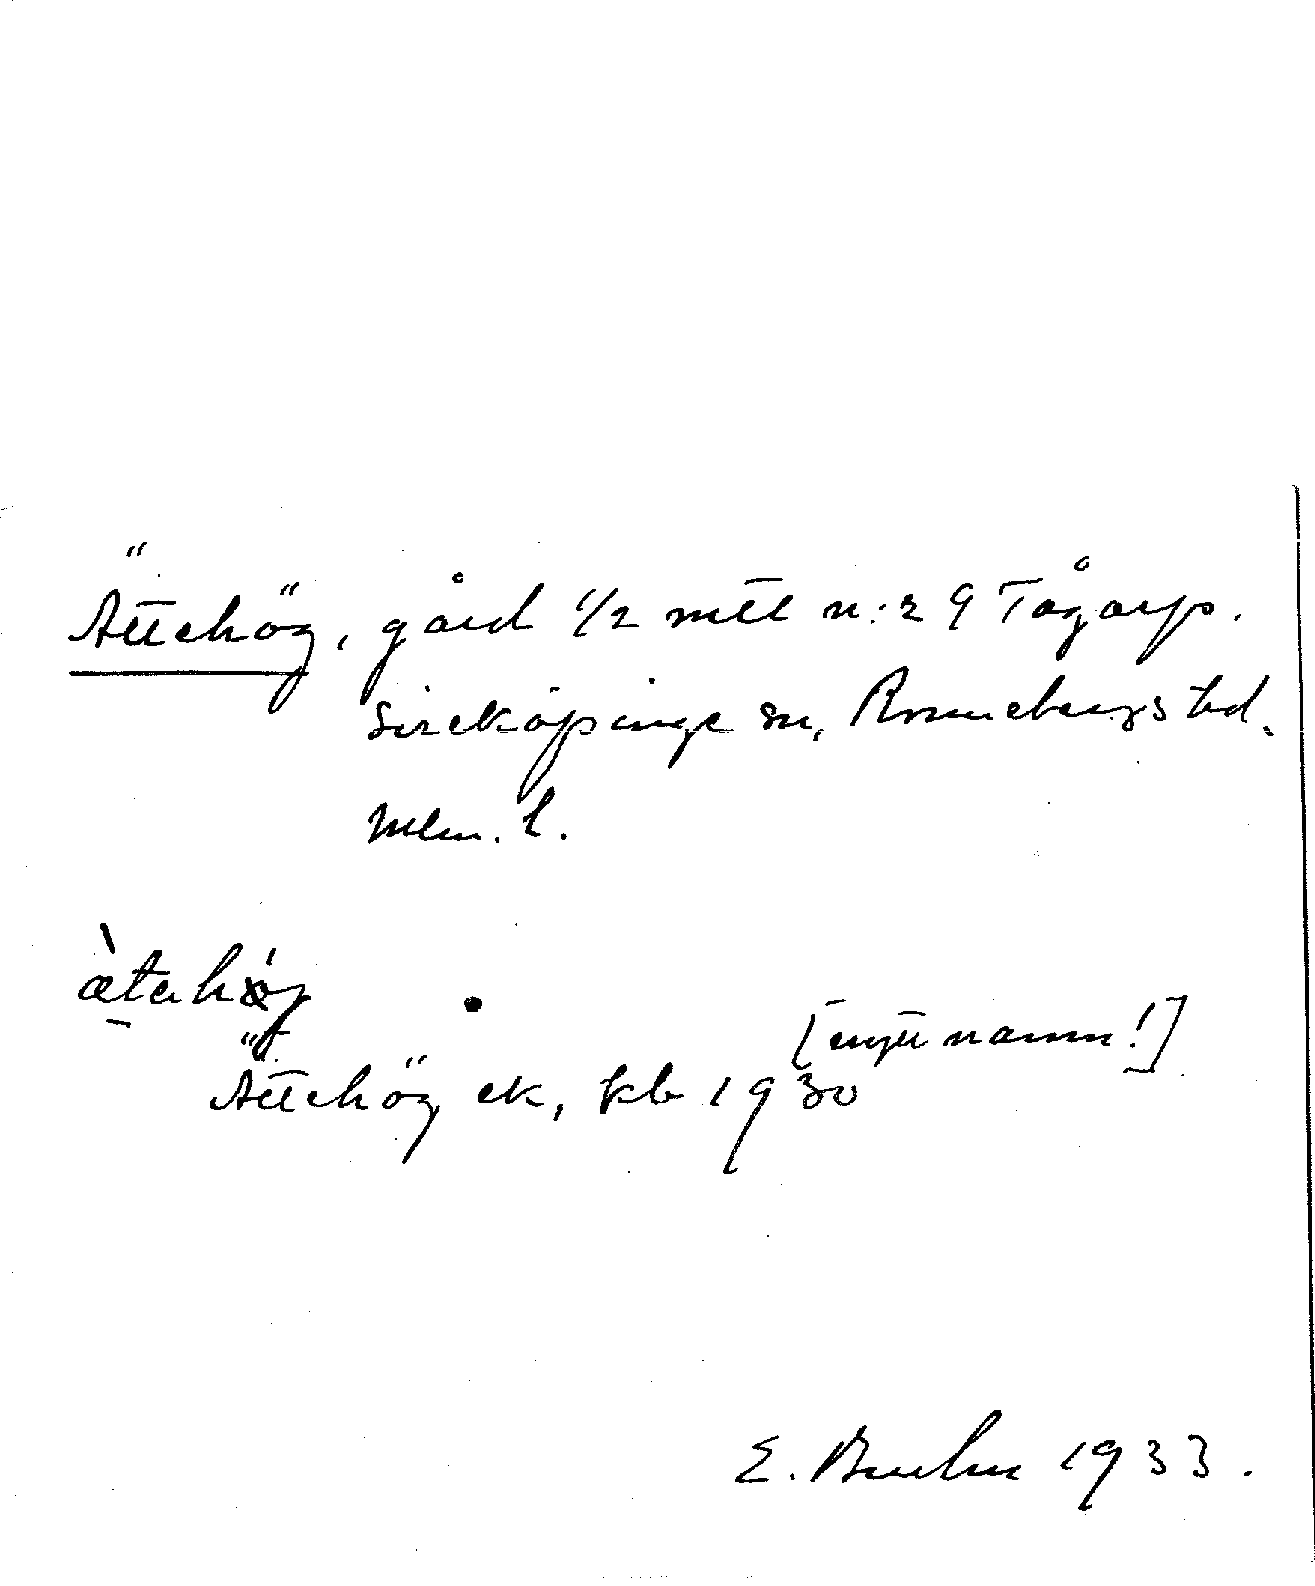 Ättehög, gård 1/2 mtl n:r 9 Tågarp.
Sireköpinge sn, Rönnebergs hd.
Mlm. l.
[nytt namn!]
Ättehög ek, kb 1930
E. Bruhn 1933.